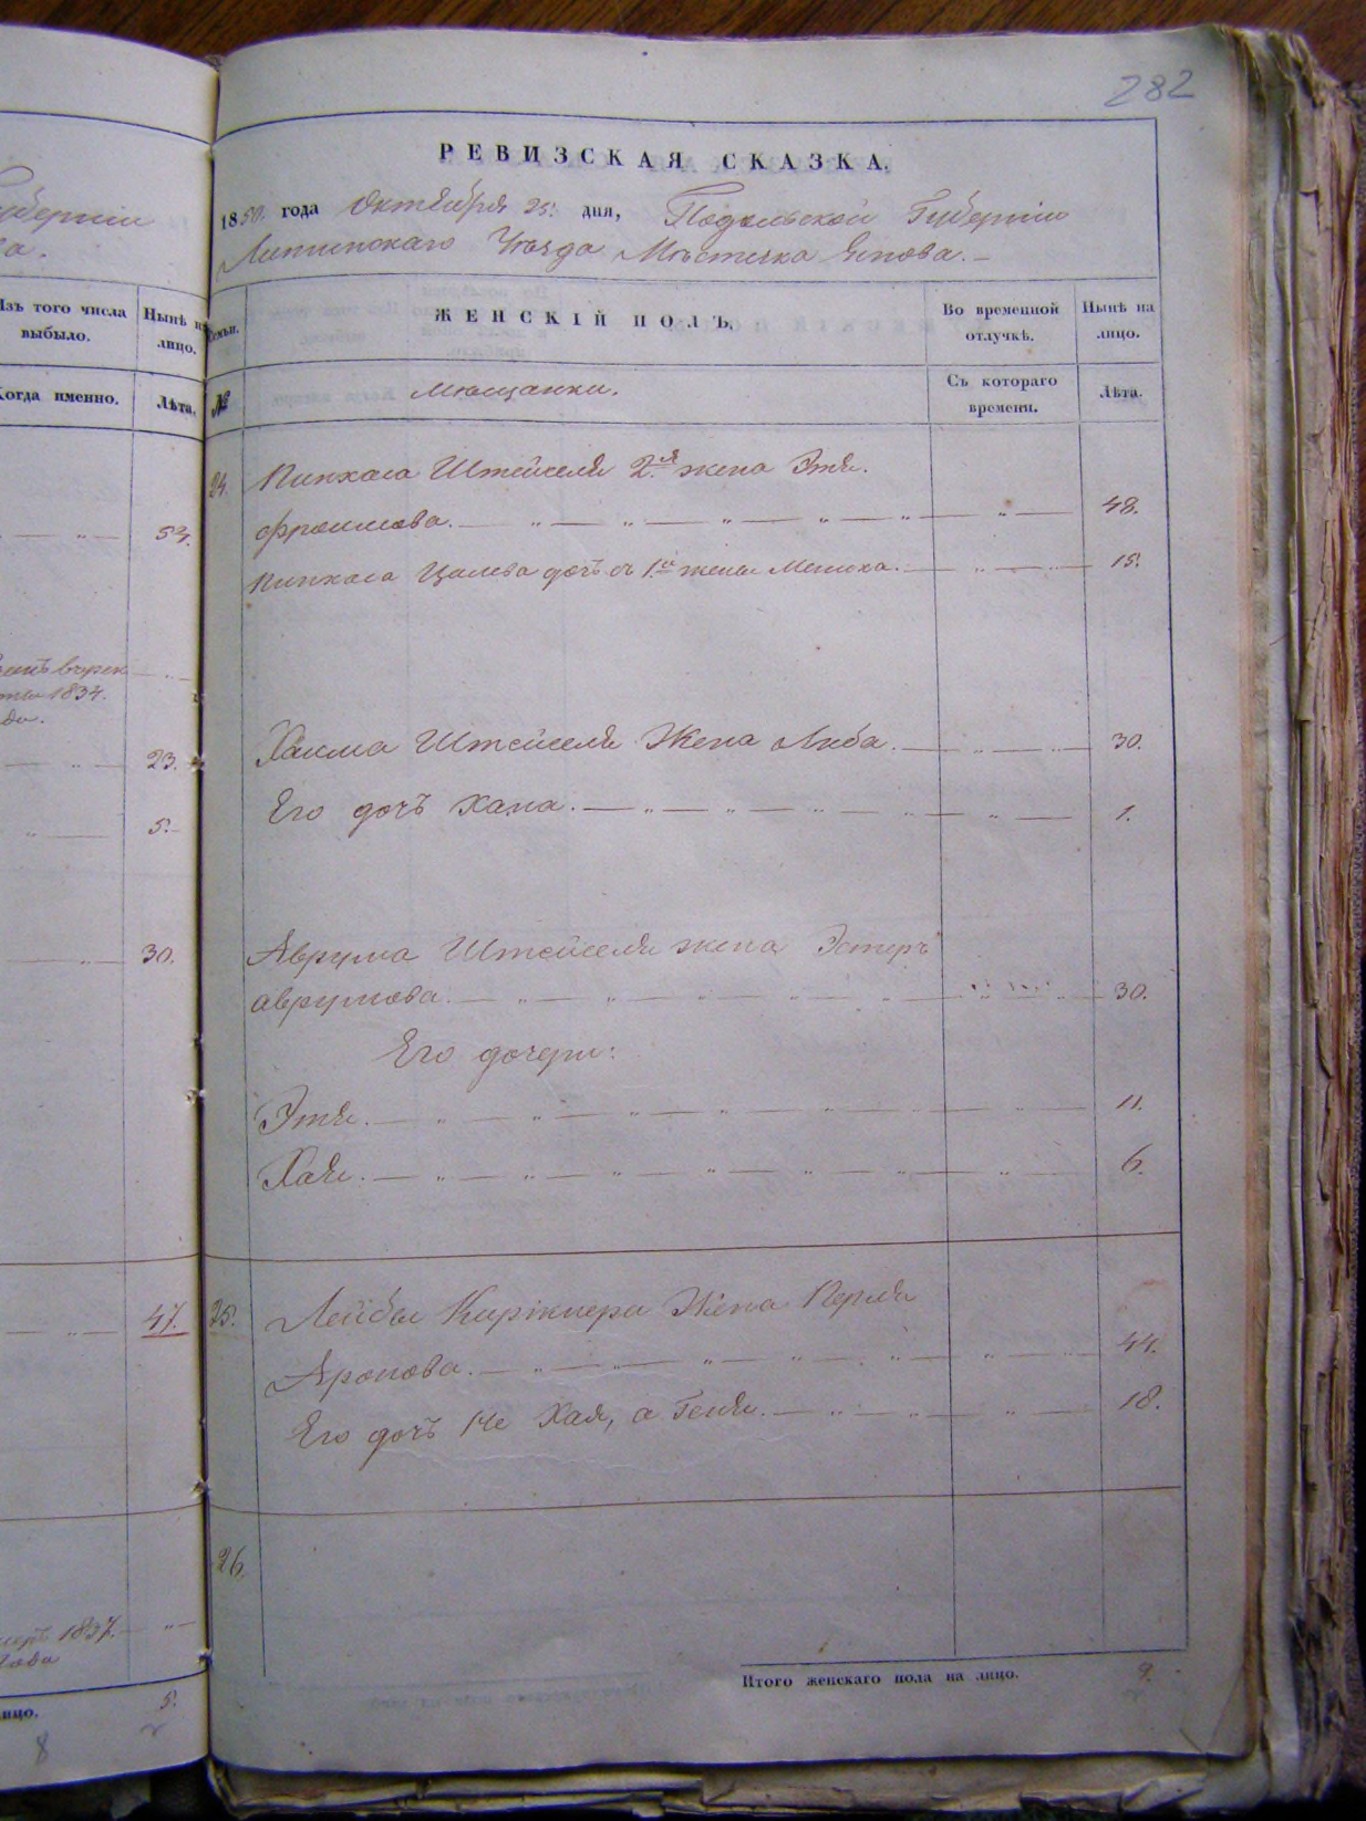 282
РЕВИЗСКАЯ СКАЗКА.
1850. года Октября 25. дня, Подольской Губерніи
Литинскаго Уѣзда Мѣстечка Янова.
губерніи
ва.
Изъ того числа выбыло.
Нынѣ на лицо.
Когда именно.
Лѣта.
53.
1834.
23.
5.
30.
47.
1837.
года
лицо.
5.
8
Семьи.
ЖЕНСКІЙ ПОЛЪ.
Во временной отлучкѣ.
Нынѣ на лицо.
№
Мѣщанки.
Съ котораго времени.
Лѣта.
24. Пинхаса Штейселя 2.я жена Этя.
Фроимова. 48.
Пинхаса дочъ съ 1.й жены Менюха. 15.
Хаима Штейселя Жена Либа. 30.
Его дочъ Хана. 1.
Аврума Штейселя жена Эстеръ
аврумова. 30.
Его дочери:
Этя. 11.
Хая. 6.
25. Лейбы Жена Перля
Аронова. 44.
Его дочъ Не Хая, а Геня. 18.
26.
Итого женскаго пола на лицо. 9.